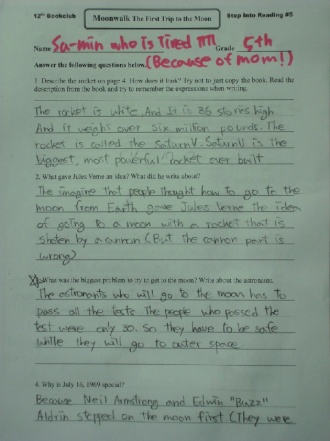 12th Bookclub Moonwalk The First Trip to the Moon Step Into Reading #5
Name Su-min who is Tired TTTT Grade 5th
Answer the following questions below. (Because of mom!)
1. Describe the rocket on page 4. How does it look? Try not to just copy the book. Read the
description from the book and try to remember the expressions when writing.
The rocket is white. And It is 36 stories high
And it weight over six million pounds. The
rocket is called the SaturnV. SaturnV is the
biggest, most powerful rocket ever built
2. What gave Jules Verne an idea? What did he write about?
The imagine that people thought how to go to the
moon from Earth gave Jules Verne the idea
of going to a moon with a rocket that is
shoten by a cannon (But the cannon part is
wrong)
3. What was the biggest problem to try to get to the moon? Write about the astronauts.
The astronants who will go to the moon has to
pass all the tests The people who passed the
test were only 30. So they have to be safe
while they will go to outer space
4. Why is July 16, 1969 special?
Because Neil Armstrong and Edwin "Buzz"
Aldrin stepped on the moon first (They were